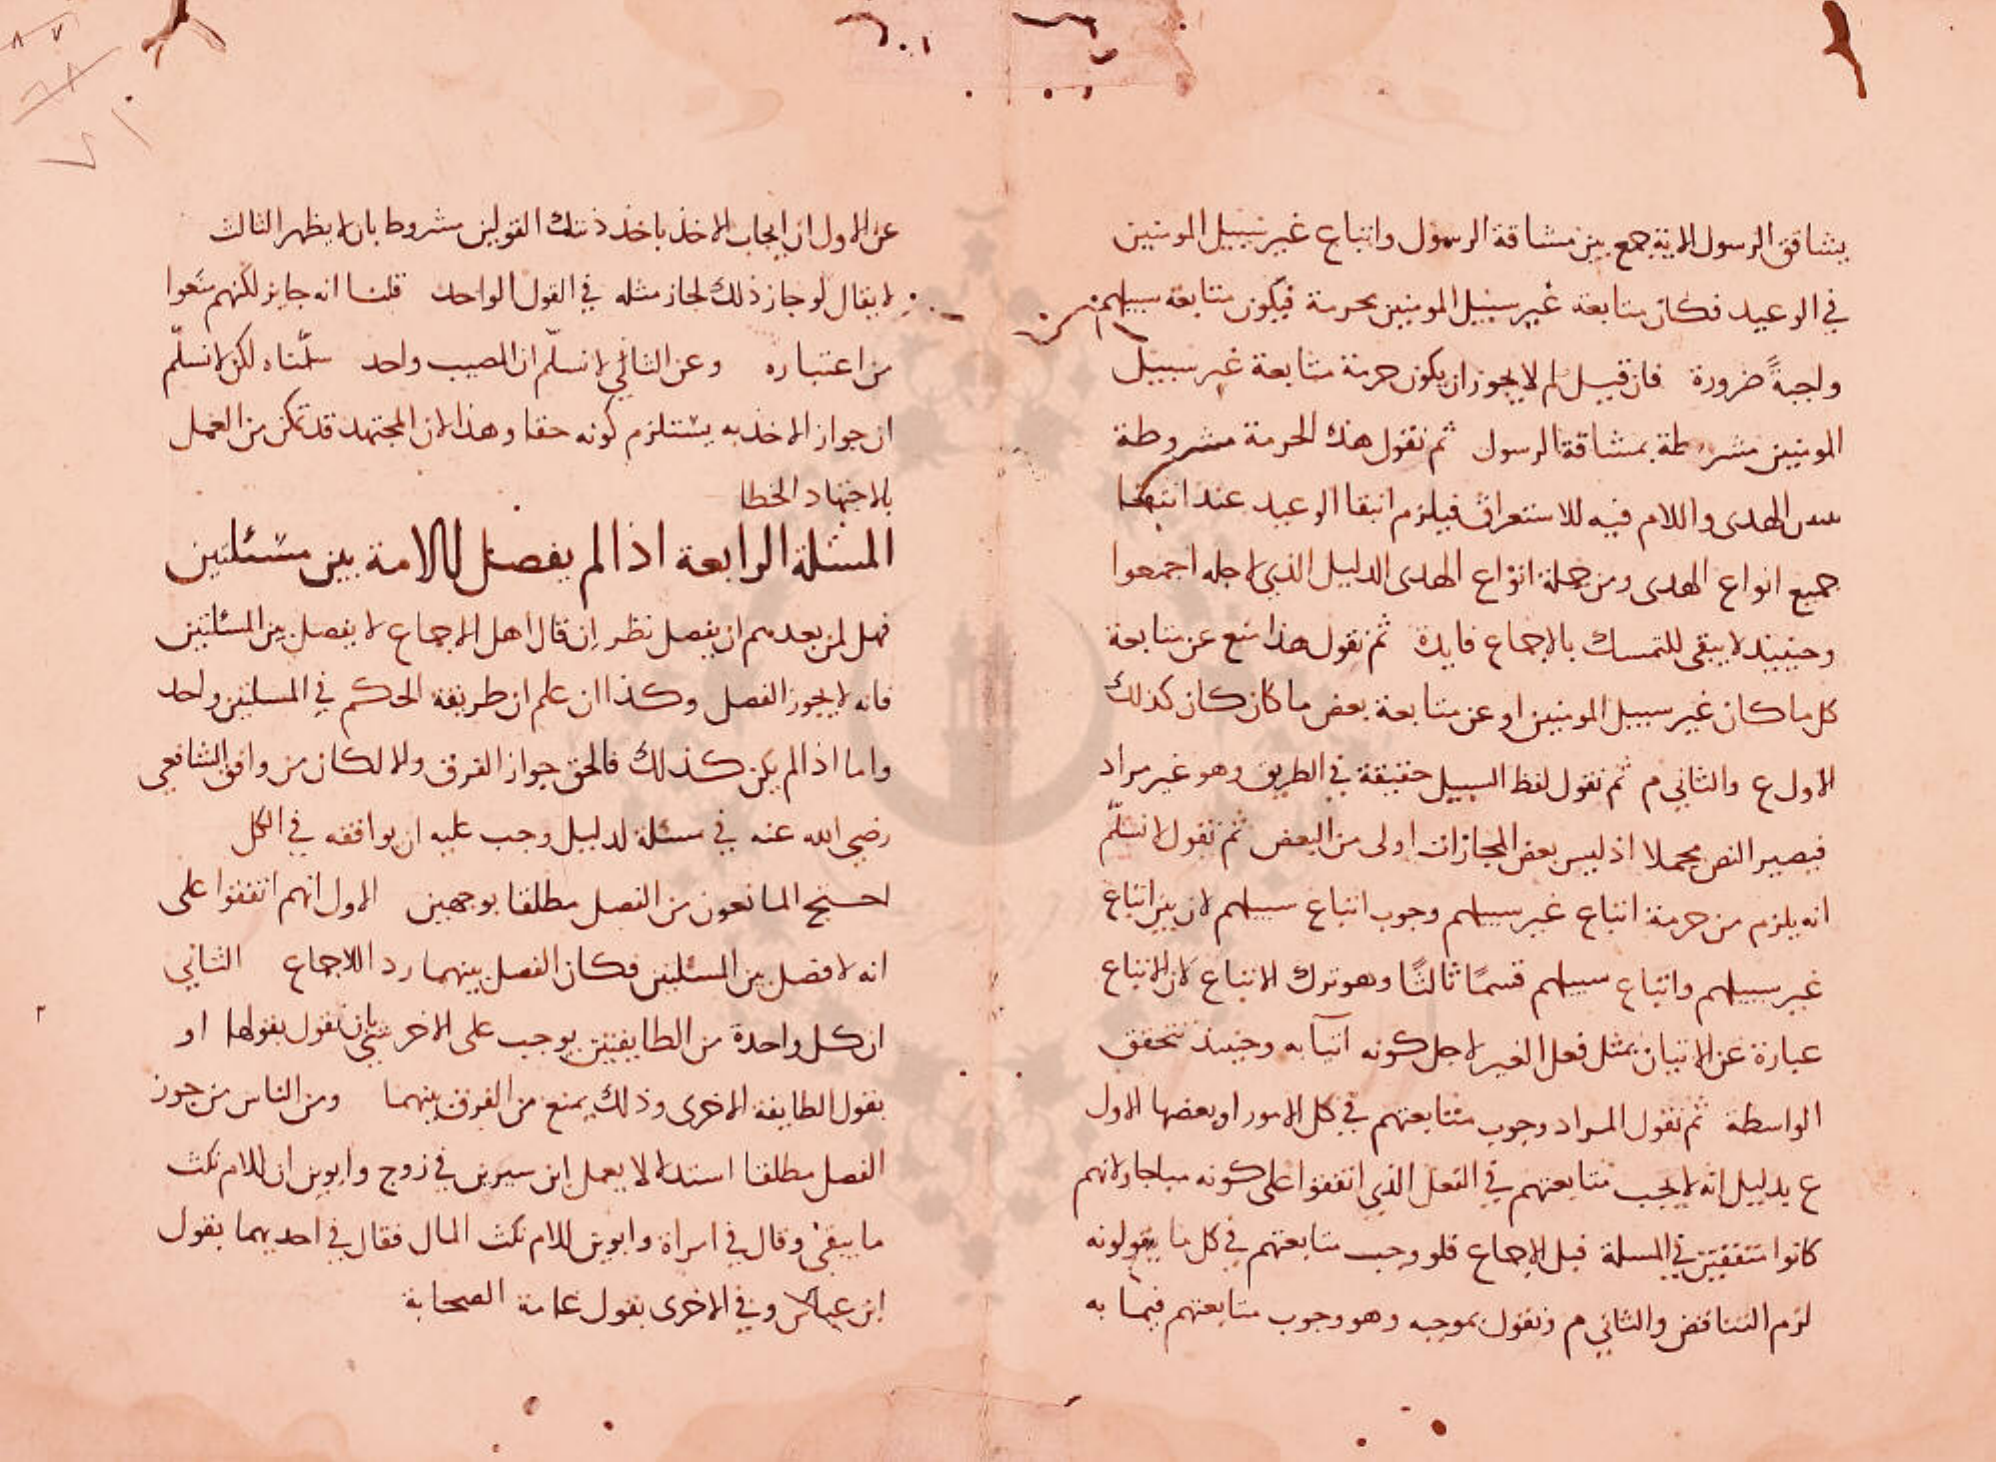 يشاقق الرسول الاية جمع بين مشاقة الرسول واتباع غير سبيل المومنين
في الوعيد فكان متابعة غير سبيل المومنين محرمة فيكون متابعة سبيلهم
واجبةً ضرورة فان قيل لم لا يجوز ان يكون حرمة متابعة غير سبيل
المومنين بمشاقة الرسول ثم نقول هذه الحرمة مشروطة
الهدى واللام فيه للاستغراق فيلزم انتفا الوعيد عند انتفا
جميع انواع الهدى ومن جملة انواع الهدى الدليل الذي لاجله اجمعوا
وحينيذ لا يبقى للتمسك بالاجماع فايدة ثم نقول هذا منع عن متابعة
كل ما كان غير سبيل المومنين او عن متابعة بعض ما كان كان كذلك
الاول ع والثاني م ثم نقول لفظ السبيل حقيقة في الطريق وهو غير مراد
فيصير النص مجملا اذ ليس بعض المجازات اولى من البعض ثم نقول لا نسلّم
انه يلزم من حرمة اتباع غير سبيلهم وجوب اتباع سبيلهم لان بين اتباع
غير سبيلهم واتباع سبيلهم قسمًا ثالثًا وهو ترك الاتباع لان الاتباع
عبارة عن الاتيان بمثل فعل الغير لاجل كونه اتيا به وحينيذ تتحقق
الواسطة ثم نقول المراد وجوب متابعتهم في كل الامور او بعضها الاول
ع بدليل انه لا يجب متابعتهم في الفعل الذي اتفقوا على كونه مباحا ولانهم
كانوا متفقين في المسلة قبل الاجماع فلو وجب متابعتهم في كل ما يقولونه
لزم التناقض والثاني م ونقول بموجبه وهو وجوب متابعتهم فيما به
عن الاول ان ايجاب الاخذ باخذ ذينك القولين مشروط بان لا يظهر الثالث
لا يقال لو جاز ذلك لجاز مثله في القول الواحد قلنا انه جايز لكنهم منعوا
من اعتباره وعن الثاني لا نسلّم ان المصيب واحد سلّمناه لكن لا نسلّم
ان جواز الاخذ به يستلزم كونه حقا وهذا لان المجتهد قد تمكن من العمل
بالاجتهاد الخطا
المسئلة الرابعة اذا لم يفصل الامة بين مسئلتين
فهل لمن بعدهم ان يفصل نظر ان قال اهل الاجماع لا يفصل بين المسئلتين
فانه لا يجوز الفصل وكذا ان علم ان طريقة الحكم في المسلتين واحد
واما اذا لم يكن كذلك فالحق جواز الفرق والا لكان من وافق الشافعي
رضي الله عنه في مسئلة لدليل وجب عليه ان يوافقه في الكل
احتج المانعون من الفصل مطلقا بوجهين الاول انهم اتفقوا على
انه لا فصل بين المسئلتين فكان الفصل بينهما ردا للاجماع الثاني
ان كل واحدة من الطايفتين يوجب على الاخرى بان تقول بقولها او
بقول الطايفة الاخرى وذلك يمنع من الفرق بينهما ومن الناس من جوز
الفصل مطلقا استدلالا بعمل ابن سيرين في زوج وابوين ان للام ثلث
ما يبقى وقال في امراة وابوين للام ثلث المال فقال في احديهما بقول
ابن عباس وفي الاخرى بقول عامة الصحابة